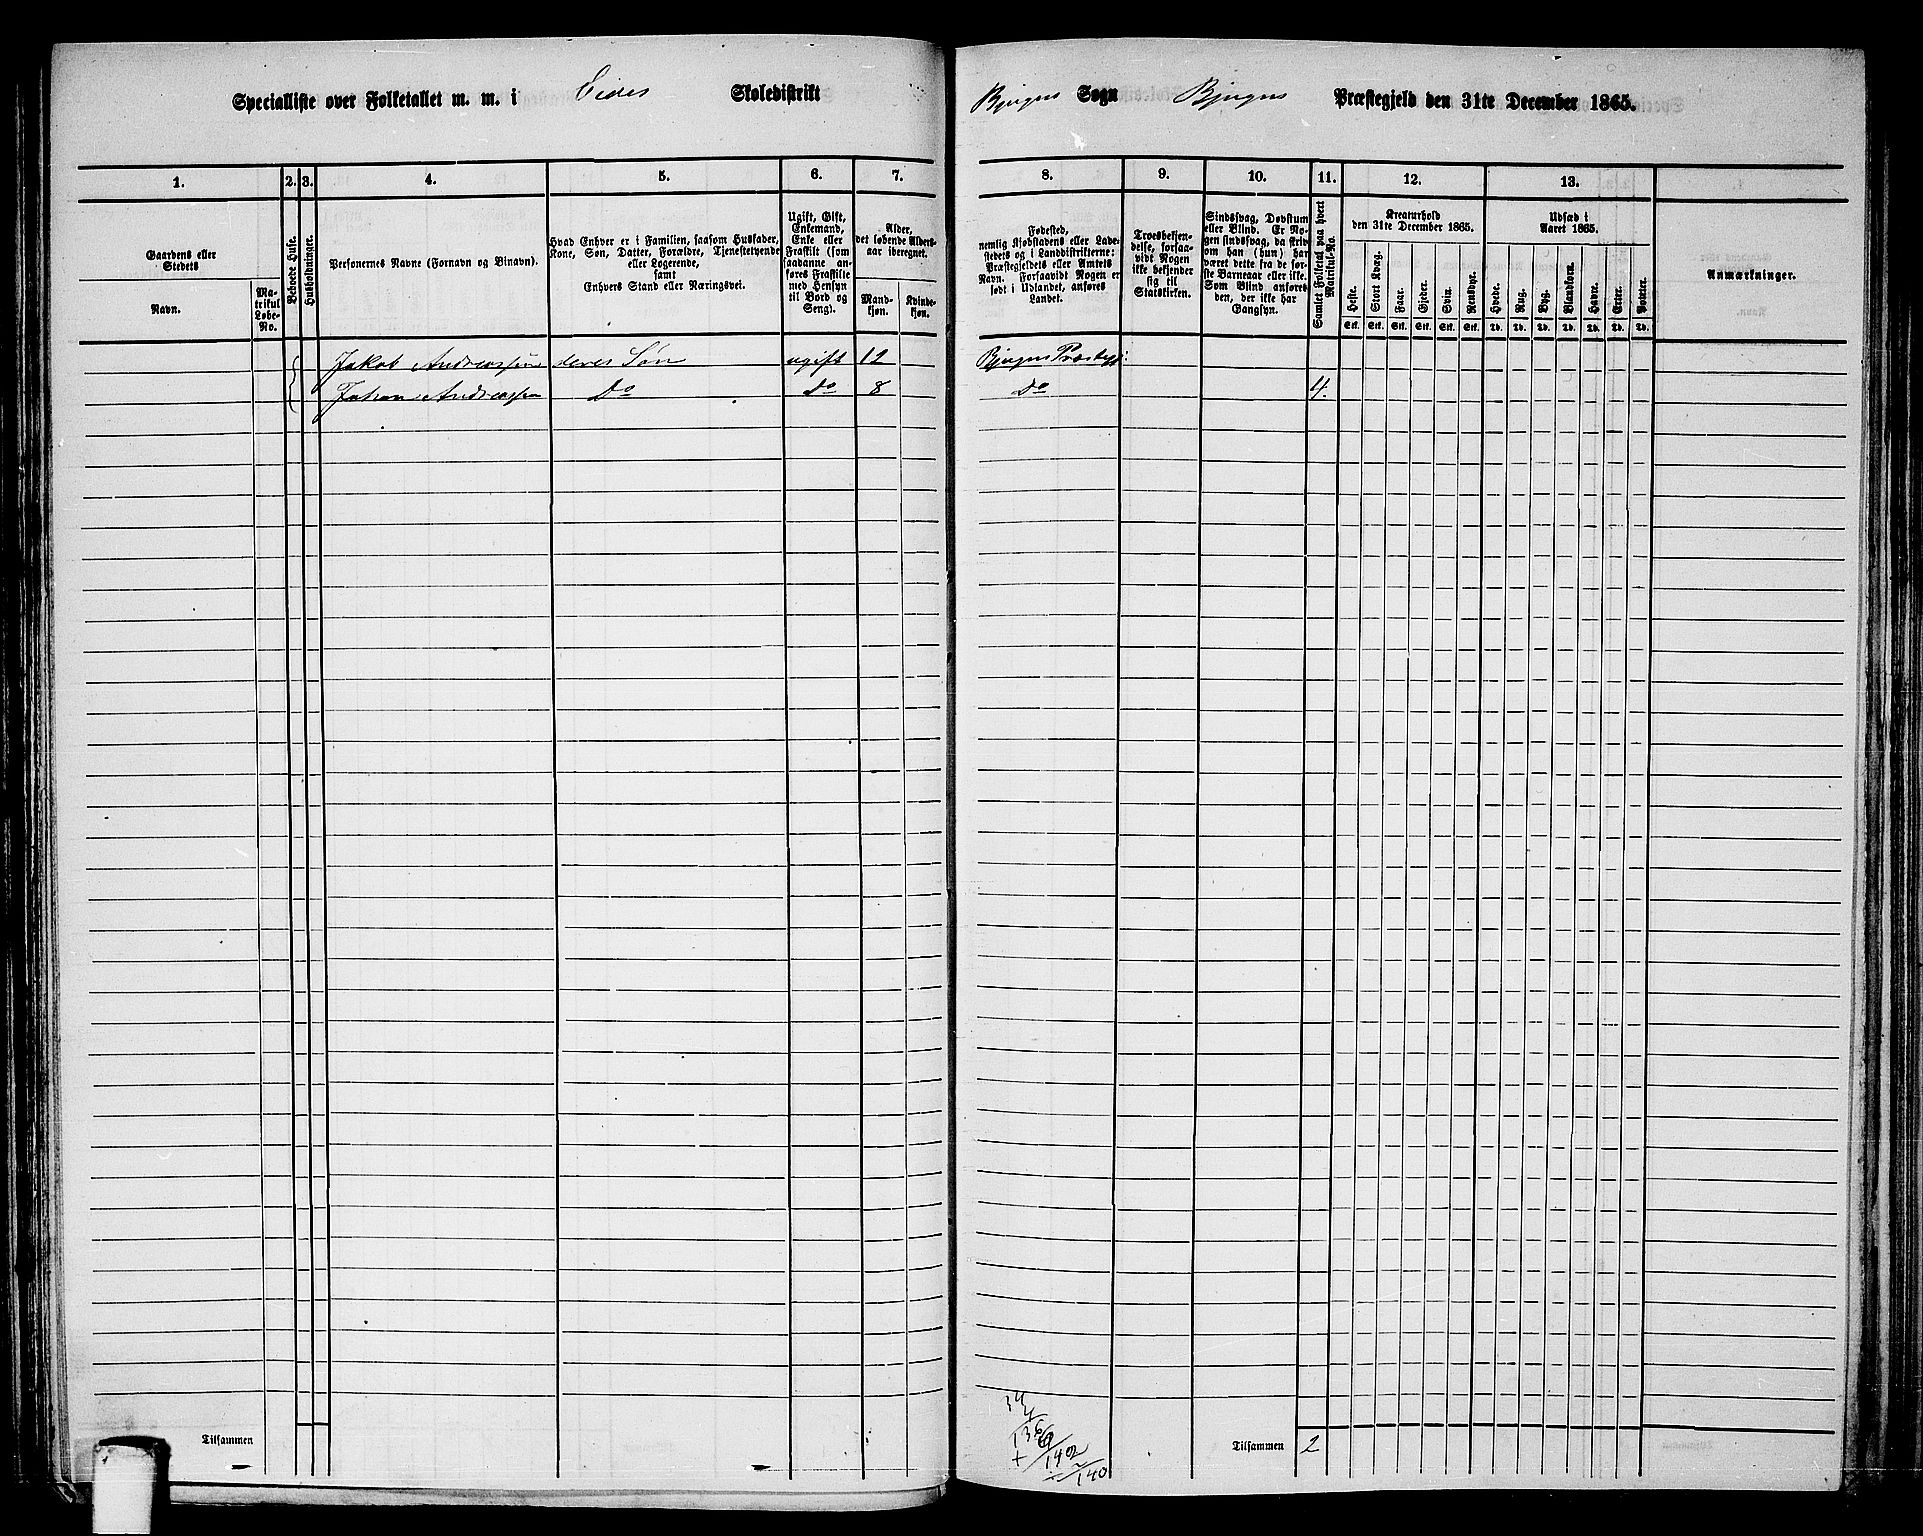 Specialliste over Folketallet m. m. i Eides Skoledistrikt
Bjugns Sogn Bjugns Præstegjeld den 31te December 1865.
1. 2. 3. 4. 5. 6. 7.
8. 9. 10. 11. 12. 13.
Gaardens eller Stedets
Navn.
Matrikul Løbe-No.
Beboede Huse.
Husholdninger.
Personernes Navne (Fornavn og Binavn).
Hvad Enhver er i Familien, saasom Husfader, Kone, Søn, Datter, Forældre, Tjenestetyende eller Logerende, samt Enhvers Stand eller Næringsvei.
Ugift, Gift, Enkemand, Enke eller Fraskilt (som saadanne anføres Fraskilte med Hensyn til Bord og Seng).
Alder, det løbende Aldersaar iberegnet.
Mandkjøn.
Kvindekjøn.
Fødested, nemlig Kjøbstadens eller Ladestedets og i Landdistrikterne: Præstegjeldets eller Amtets Navn. Forsaavidt Nogen er født i Udlandet, anføres Landet.
Troesbekjendelse, forsaavidt Nogen ikke bekjender sig til Statskirken.
Sindssvag, Døvstum eller Blind. Er Nogen sindssvag, da skrives om han (hun) har været dette fra de første Barneaar eller ikke. Som Blind anføres den, der ikke har Gangsyn.
Samlet Folketal paa hvert Matrikul-No.
Kreaturhold den 31te December 1865.
Heste. Stort Kvæg. Faar. Gjeder. Svin. Rensdyr.
Stk. Stk. Stk. Stk. Stk. Stk.
Udsæd i Aaret 1865.
Hvede. Rug. Byg. Blandkorn. Havre. Erter. Poteter.
Td. Td. Td. Td. Td. Td. Td.
Anmærkninger.
Jakob Andreassøn deres Søn ugift 12 Bjugns Præstegj:
Johan Andreassøn Do Do 8 Do 4.
Tilsammen
Tilsammen 2
34
136
6
+ 142
2
140